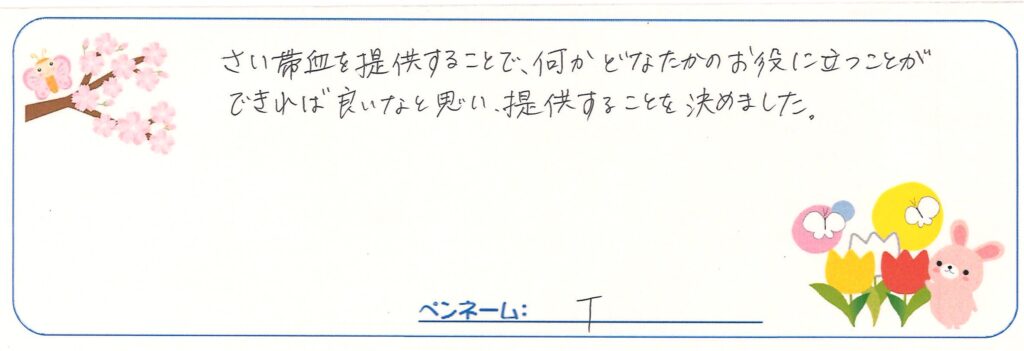 さい帯血を提供することで、何かどなたかのお役に立つことが
できれば良いなと思い、提供することを決めました。
ペンネーム: T